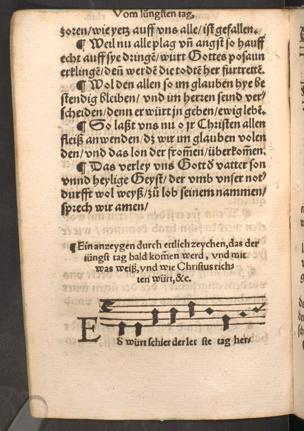 Vom jüngsten tag.
zoren/wie yetz auff vns alle/ist gefallen.
¶ Weil nu alle plag vñ angst so hauff
echt auff sye dringē/wurt Gottes posaun
erklingē/deñ werdē die todtē herfurtrettē.
¶ Wol den allen so im glauben hye be
stendig bleiben/vnd im hertzen seind ver/
scheiden/denn er würt jn geben/ewig lebē.
¶ So laßt vns nu o jr Christen allen
fleiß anwenden/dz wir im glauben volen
den/vnd das lon der from̃en/überkom̃en.
¶ Das verley vns Gott vatter son
vnnd heylige Geyst/der vmb vnser not/
durfft wol weyß/zů lob seinem nammen/
sprech wir amen/
¶ Ein anzeygen durch etlich zeychen, das der
iüngst tag bald kom̃en werd, vnd mit
was weiß, vnd wie Christus rich-
ten würt, &c.
ES würt schier der letste tag her/